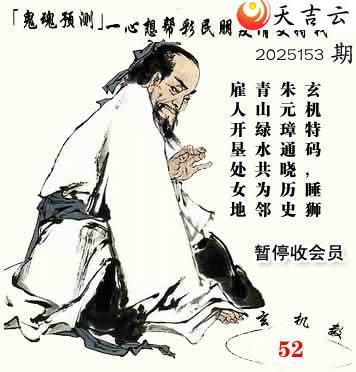 天吉云
「鬼魂预测」一心想帮彩民朋
2025153 期
玄机特码，睡狮
朱元璋通晓历史
青山绿水共为邻
雇人开垦处女地
暂停收会员
玄机数
52